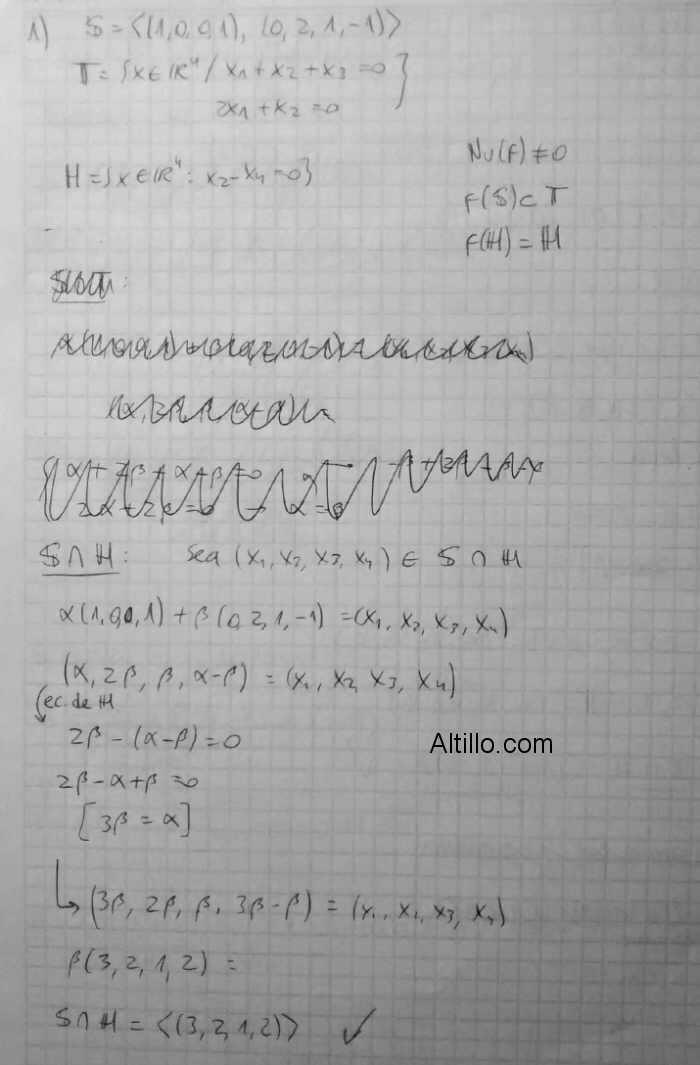 1) S = <(1,0,0,1), (0,2,1,-1)>
T = {x ∈ ℝ⁴ / x₁ + x₂ + x₃ = 0
2x₁ + x₂ = 0 }
H = {x ∈ ℝ⁴ : x₂ - x₄ = 0}
Nu(f) ≠ 0
f(S) ⊂ T
f(H) = H
S ∩ H : Sea (x₁, x₂, x₃, x₄) ∈ S ∩ H
α(1,0,0,1) + β(0,2,1,-1) = (x₁, x₂, x₃, x₄)
(α, 2β, β, α-β) = (x₁, x₂, x₃, x₄)
ec. de H
2β - (α-β) = 0
Altillo.com
2β - α + β = 0
[3β = α]
↳ (3β, 2β, β, 3β-β) = (x₁, x₂, x₃, x₄)
β(3,2,1,2) =
S ∩ H = <(3,2,1,2)> ✓